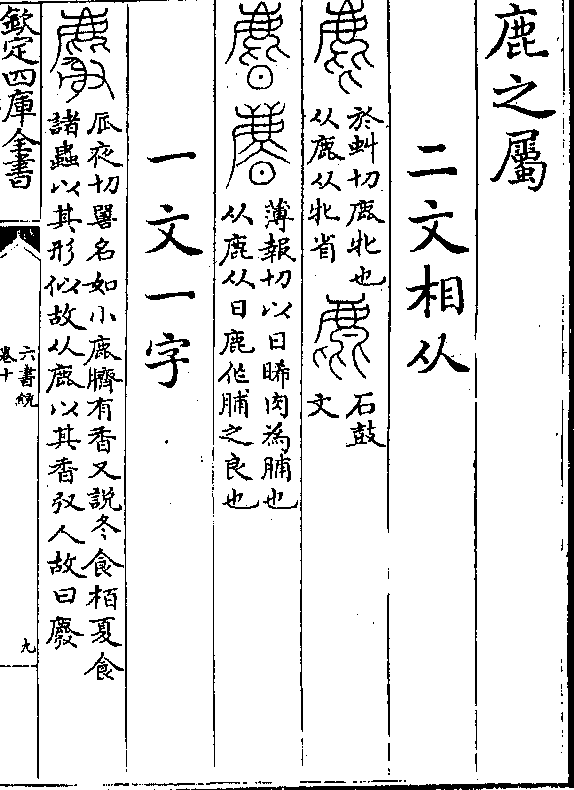 鹿之屬
二文相从
於虯切鹿牝也
从鹿从牝省
石鼓
文
薄報切以日晞肉為脯也
从鹿从日鹿作脯之良也
一文一字
辰夜切嘼名如小鹿臍有香又說冬食栢夏食
諸蟲以其形似故从鹿以其香人故曰
欽定四庫全書
六書統
卷十
九